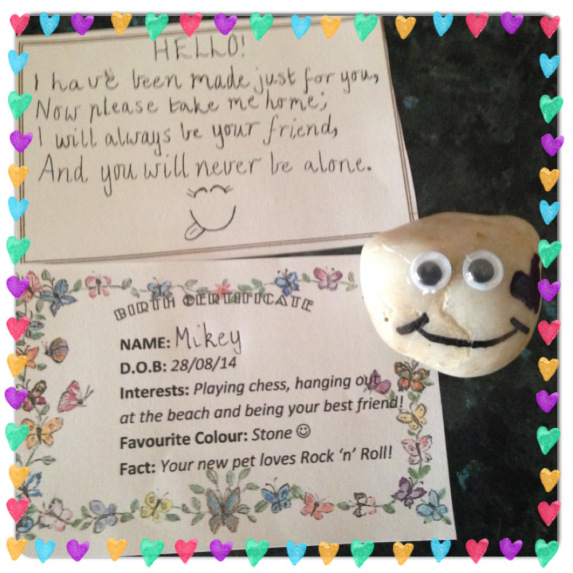 HELLO!
I have been made just for you,
Now please take me home;
I will always be your friend,
And you will never be alone.
BIRTH CERTIFICATE
NAME: Mikey
D.O.B: 28/08/14
Interests: Playing chess, hanging out
at the beach and being your best friend!
Favourite Colour: Stone ☺
Fact: Your new pet loves Rock ‘n’ Roll!